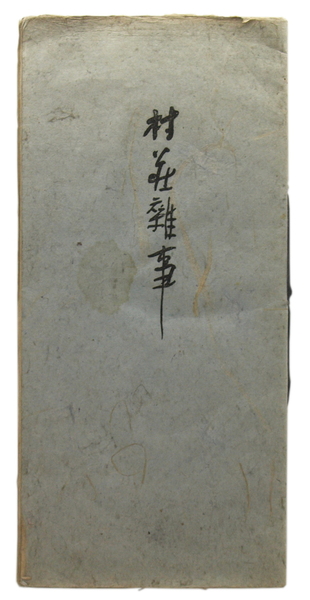 村莊雜事